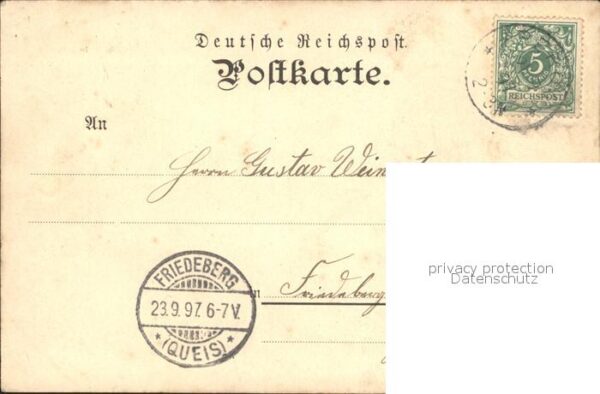 Deutsche Reichspost.
Postkarte.
5
REICHSPOST
An
Herrn Gustav
privacy protection
Datenschutz
in Friedeberg
FRIEDEBERG
23.9.97. 6-7V.
* (QUEIS) *